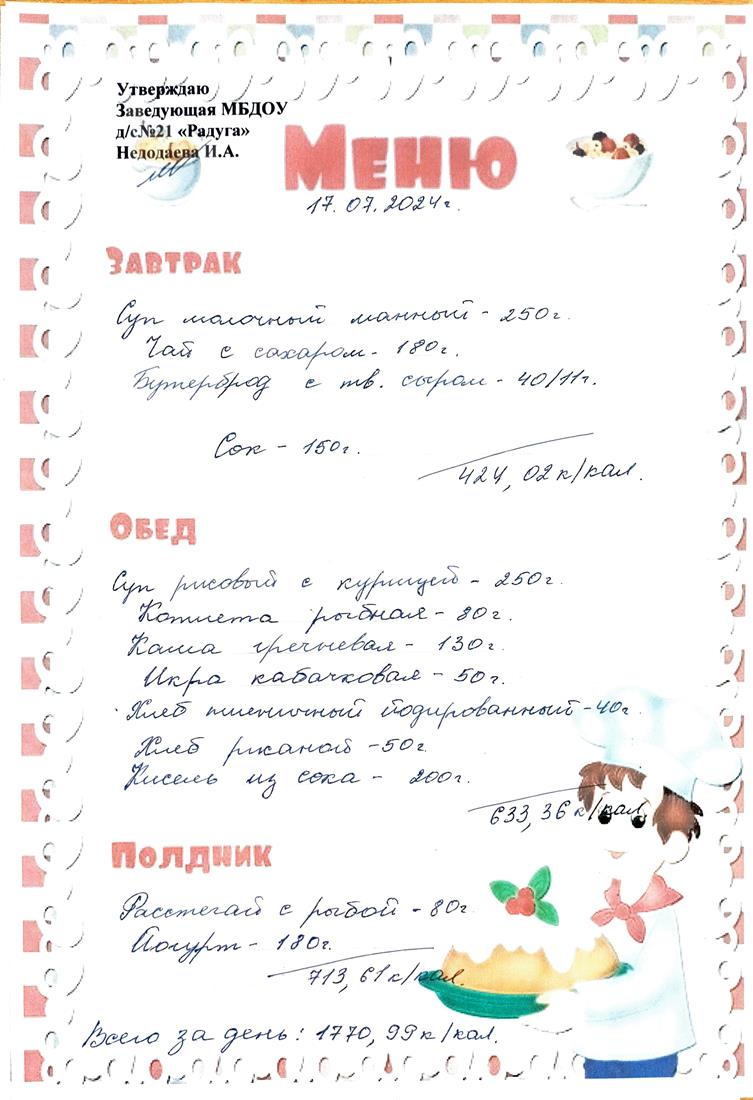 Утверждаю
Заведующая МБДОУ
д/с№21 «Радуга»
Недодаева И.А.
Меню
17.07.2024г.
Завтрак
Суп молочный манный - 250г.
Чай с сахаром - 180г.
Бутерброд с тв. сыром - 40/11г.
Сок - 150г.
424,02к/кал.
Обед
Суп рисовый с курицей - 250г.
Котлета рыбная - 80г.
Каша гречневая - 130г.
Икра кабачковая - 50г.
Хлеб пшеничный йодированный - 40г
Хлеб ржаной - 50г
Кисель из сока - 200г.
633,36к/кал
Полдник
Расстегай с рыбой - 80г
Йогурт - 180г.
713,61к/кал.
Всего за день: 1770,99к/кал.